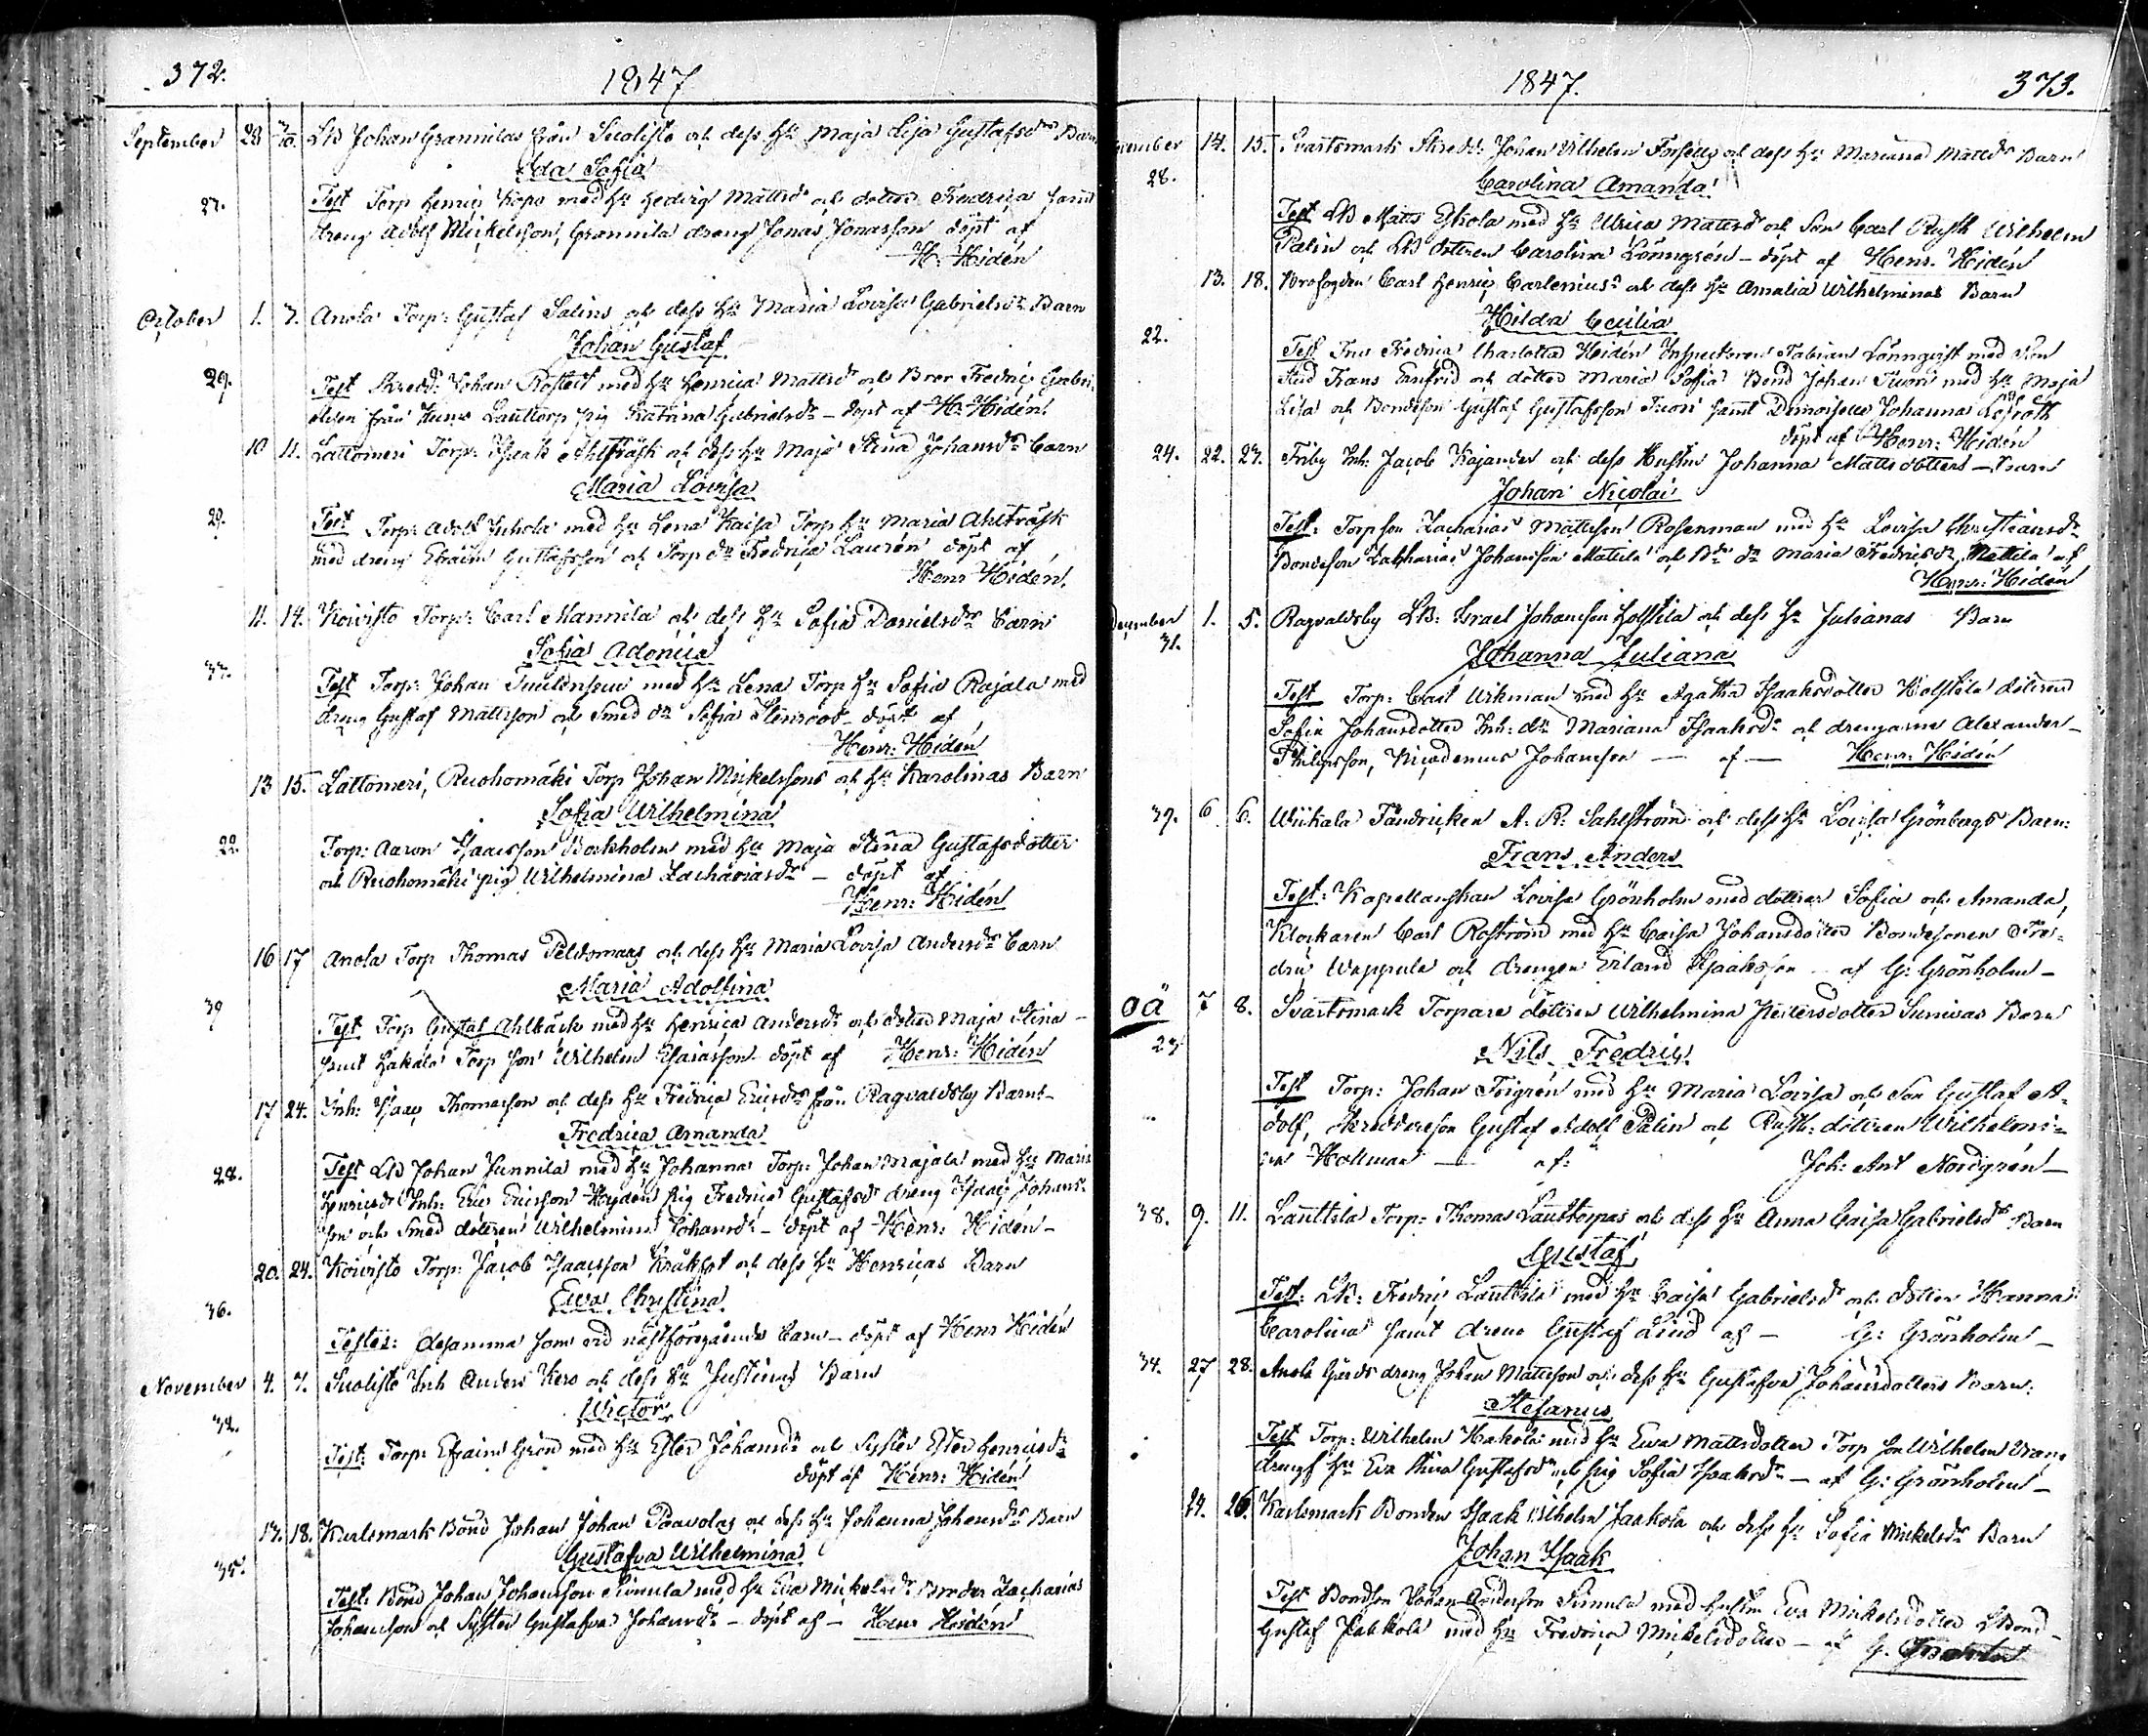 372.
1847
September 28 3/10. LB Johan Grannilas från Suolisto och dess Hu Maja Lisa Gustafsdrs Barn
Ida Sofia
27. Test Torp Henric Kopo med Hu Hedvig Mattsdr och dotter Fredrica samt
dreng Adolf Mickelsson, Grannila dreng Jonas Jonasson döpt af
H. Hidén
October 1. 7. Anola Torp: Gustaf Salins och dess Hu Maria Lovisa Gabrielsdrs Barn
Johan Gustaf
29. Test Skredd: Johan Rostedt med Hu Henrica Mattsdr och Bror Fredric Gabri-
elsson från Lauttorp pig Katrina Gabrielsdr - döpt af H: Hidén
10 11. Lattomeri Torp: Isaak Ahlträsk och dess Hu Maja Stina Johansdrs Barn
Maria Lovisa
29. Test Torp: Adolf Juhola med Hu Lena Kaisa Torp Hu Maria Ahlträsk
med dreng Efraim Gustafsson och Torp dr Fredrica Laurén döpt af
Henr Hidén.
11. 14. Koivisto Torp: Carl Mannila och dess Hu Sofia Danielsdrs Barn
Sofia Adonia
33. Test Torp: Johan med Hu Lena Torp Hu Sofia Rajala med
dreng Gustaf Mattsson och Smed dr Sofia Stenroos - döpt af
Henr: Hidén
13 15. Lattomeri, Ruohomäki Torp Johan Mickelssons och Hu Karolinas Barn
Sofia Wilhelmina
22. Torp: Aaron Isaacsson Backholm med Hu Maja Stina Gustafsdotter
och Ruohomäki pig Wilhelmina Zachariasdr - döpt af
Henr: Hidén
16 17 Anola Torp Thomas Peldomaas och dess Hu Maria Lovisa Andersdrs Barn
Maria Adolfina
39 Test Torp Gustaf Ahlbäck med Hu Henrica Andersdr och dotter Maja Stina -
samt Hakala Torp son Wilhelm Esaiasson döpt af Henr: Hidén
17 24. Inh: Isaac Thomasson och dess Hu Fredrica Ericsdrs från Ragvaldsby Barn -
Fredrica Amanda
28. Test LB Johan Junnila med Hu Johanna Torp: Johan Majala med Hu Maria
Henricsdr Inh: Eric Ericsson Hydén pig Fredrica Gustafsdr dreng Isaac Johans-
son och Smed dottren Wilhelmina Johansdr - döpt af Henr: Hidén -
20. 24. Koivisto Torp: Jacob Isaacsson Kråkfot och dess Hu Henricas Barn
Ewa Christina
36. Testes: desamma som vid nästföregående Barn - döpt af Henr Hidén
November 4. 7. Suolisto Inh Anders Kero och dess Hu Justinas Barn
Wictor
32. Test: Torp: Efraim Grön med Hu Ester Johansdr och Syster Ester Henricsdr
döpt af Henr: Hidén
17. 18. Karlsmark Bond Johan Johan Paavolas och dess Hu Johanna Johansdrs Barn
Gustafva Wilhelmina
35. Test: Bond Johan Johansson Simula med Hu Eva Mickelsdr Broder Zacharias
Johansson och Syster Gustafva Johansdr - döpt af - Henr Hidén
1847.
373.
vember 14. 15. Svartsmark Skredd: Johan Wilhelm och dess Hu Mariana Mattsdrs Barn
28. Carolina Amanda
Test LB Matts Eskola med Hu Ulrica Mattsdr och Son Carl Rusth Wilhelm
Palin och LB dottren Carolina Lönngrén - döpt af Henr. Hidén
13. 18. Brofogden Carl Henric Carlenius och dess Hu Amalia Wilhelminas Barn
Hilda Cecilia
22. Test Fru Fredrica Charlotta Hidén Inspectoren Fabian Lönnqvist med Son
Stud Frans Ernfrid och dotter Maria Sofia Bond Johan Tuori med Hu Maja
Lisa och Bondeson Gustaf Gustafsson Tuori samt Demoiselle Johanna Löfroth
döpt af Henr: Hidén
24. 22. 23. Friby Inh: Jacob Kajander och dess Hustru Johanna Mattsdotters - Barn
Johan Nicolai
Test: Torpson Zacharias Mattsson Rosenman med Hu Lovisa Christiansdr
Bondeson Zacharias Johansson Mattila och Bde dr Maria Fredricsdr Mattila af
Henr: Hidén
December 1. 5. Ragvaldsby LB: Israel Johansson Holstila och dess Hu Julianas Barn
31. Johanna Juliana
Test Torp: Carl Wikman med Hu Agatha Isaaksdotter Holstila dottren
Sofia Johansdotter Inh: dr Mariana Isaaksdr och drengarne Alexander -
Philipsson, Nicodemus Johansson — af — Henr: Hidén
39. 6. 6. Wiikala Fändricken A. R. Sahlström och dess Hu Lovisa Grönbergs Barn:
Frans Anders
Test: Kapellanskan Lovisa Grönholm med döttrar Sofia och Amanda,
Klockaren Carl Roström med Hu Caisa Johansdotter Bondesonen Fre-
dric Wappula och drengen Erland Isaaksson - af G: Grönholm -
oä 7 8. Svartsmark Torpare dottren Wilhelmina Pettersdotter Sunivas Barn
23 Nils Fredric
Test Torp: Johan Teigrén med Hu Maria Lovisa och Son Gustaf A-
dolf, Skreddareson Gustaf Adolf Palin och Rusth: dottren Wilhelmi-
na Holtman — af: Joh: Ant Nordgrén -
38. 9. 11. Lauttila Torp: Thomas Lauttorpas och dess Hu Anna Caisa Gabrielsdrs Barn
Gustaf
Test: LB: Fredric Lauttila med Hu Caisa Gabrielsdr och dotter Hanna
Carolina samt dreng Gustaf Lind af - G: Grönholm -
34. 27 28. Anola Gårds dreng Johan Mattsson och dess Hu Gustafva Johansdotters Barn.
Stefanus
Test Torp: Wilhelm Hakola med Hu Ewa Mattsdotter Torp son Wilhelm
drengs Hu Eva Stina Gustafsdr och pig Sofia Isaaksdr - af G: Grönholm -
24. 26. Karlsmark Bonden Isaak Wilhelm Jaakola och dess Hu Sofia Mickelsdrs Barn
Johan Isaak
Test Bondson Johan Andersson Simula med hustru Eva Mickelsdotter LBond -
Gustaf Jaakkola med Hu Fredrica Mickelsdotter - af G. Grönholm